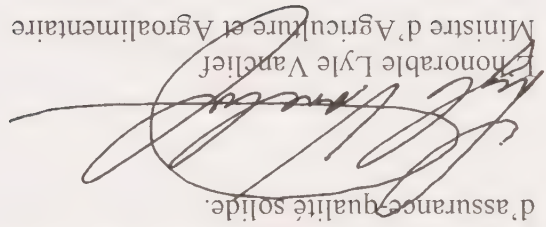 d'assurance-qualité solide.
L'honorable Lyle Vanclief
Ministre d'Agriculture et Agroalimentaire